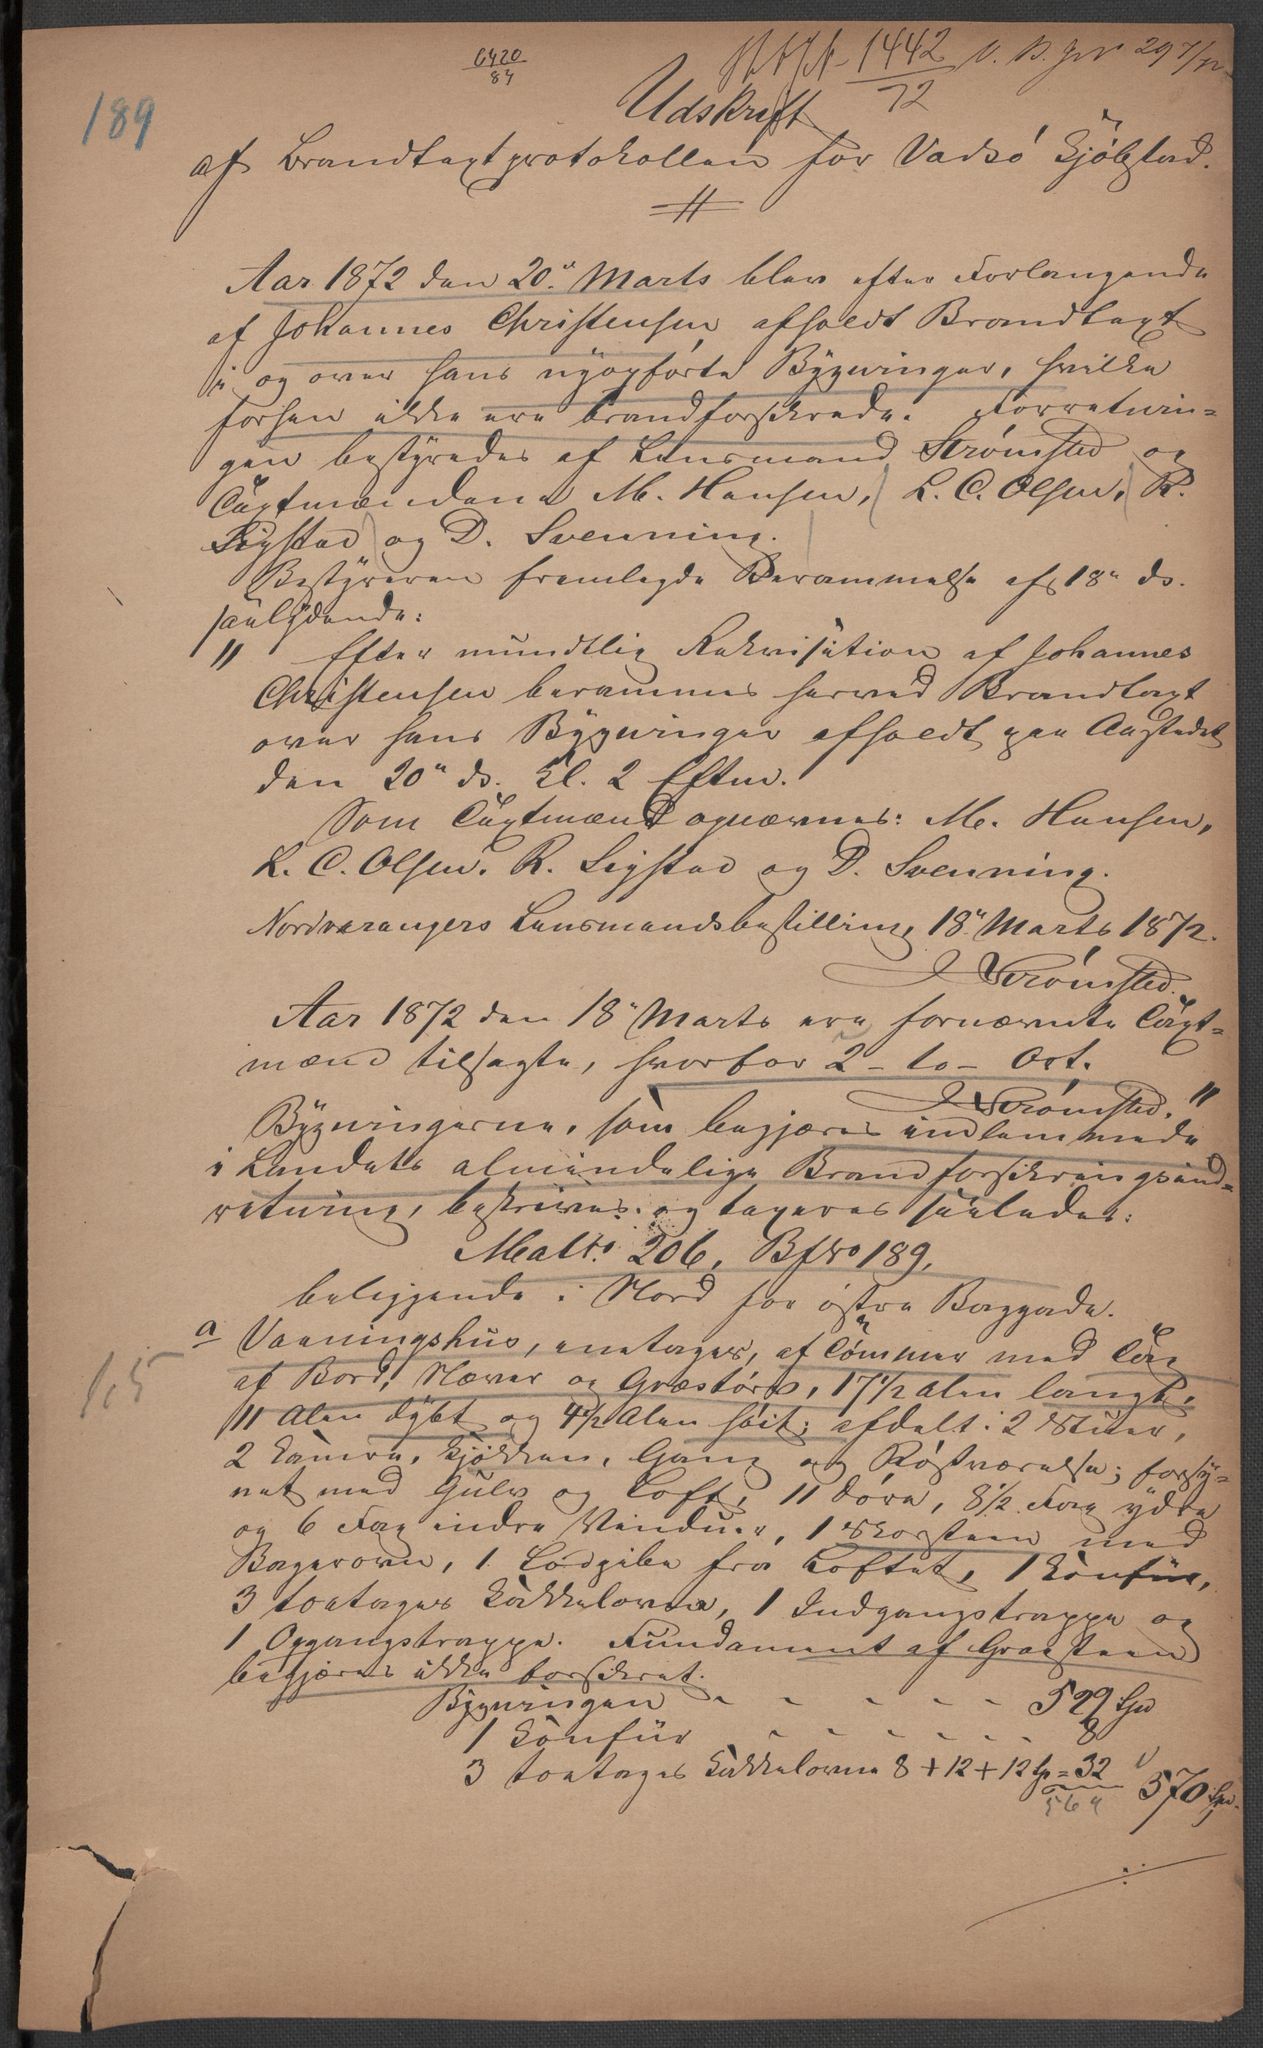 6420
84
1442
72
29 7/12
189
Udskrift
af Brandtaxtprotokollen for Vadsö Kjöbstad.
Aar 1872 den 20de Marts blev efter Forlangende
af Johannes Christensen afholdt Brandtaxt
i og over hans nyopförte Bygninger, hvilke
forhen ikke ere brandforsikrede. Forretnin-
gen bestyredes af Lensmand Strömsted og
Taxtmændene M. Hansen, L. C. Olsen, R.
Sigstad og D. Svenning.
Bestyreren fremlagde Berammelse af 18de ds.
saalydende:
" Efter mundtlig Rekvisition af Johannes
Christensen berammes herved Brandtaxt
over hans Bygninger afholdt paa Aastedet
den 20de ds. Kl. 2 Efterm.
Som Taxtmænd opnævnes: M. Hansen,
L. C. Olsen. R. Sigstad og D. Svenning.
Nordvarangers Lensmandsbestilling, 18de Marts 1872.
J Strömsted.
Aar 1872 den 18de Marts ere fornævnte Taxt-
mænd tilsagte, hvorfor 2 - to - Ort.
J Strömsted. "
Bygningerne, som begjæres indlemmede
i Landets almindelige Brandforsikringsind-
retning, beskrives og taxeres saaledes:
Mattr. 206, Bf No 189,
beliggende i Nord for östre Baggade.
a Vaaningshus, enetages, af Tömmer med Tag
af Bord, Næver og Græstörv, 17 1/2 Alen langt,
11 Alen dybt og 4 1/2 Alen höit; afdelt i 2 Stuer,
2 Kamre, Kjökken, Gang og Röstværelse; forsy-
net med Gulv og Loft, 11 Döre, 8 1/2 Fag ydre
og 6 Fag indre Vinduer, 1 Skorsteen med
Bagerovn, 1 Lodpibe fra Loftet, 1 Komfur,
3 toetages Kakkelovne, 1 Indgangstrappe og
1 Opgangstrappe. Fundament af Graasteen
begjæres ikke forsikret.
Bygningen - - - - - 529 Spd
1 Komfur - - - - - - 8
3 toetages Kakkelovne 8 + 12 + 12 Sp = 32
569
570 Spd.